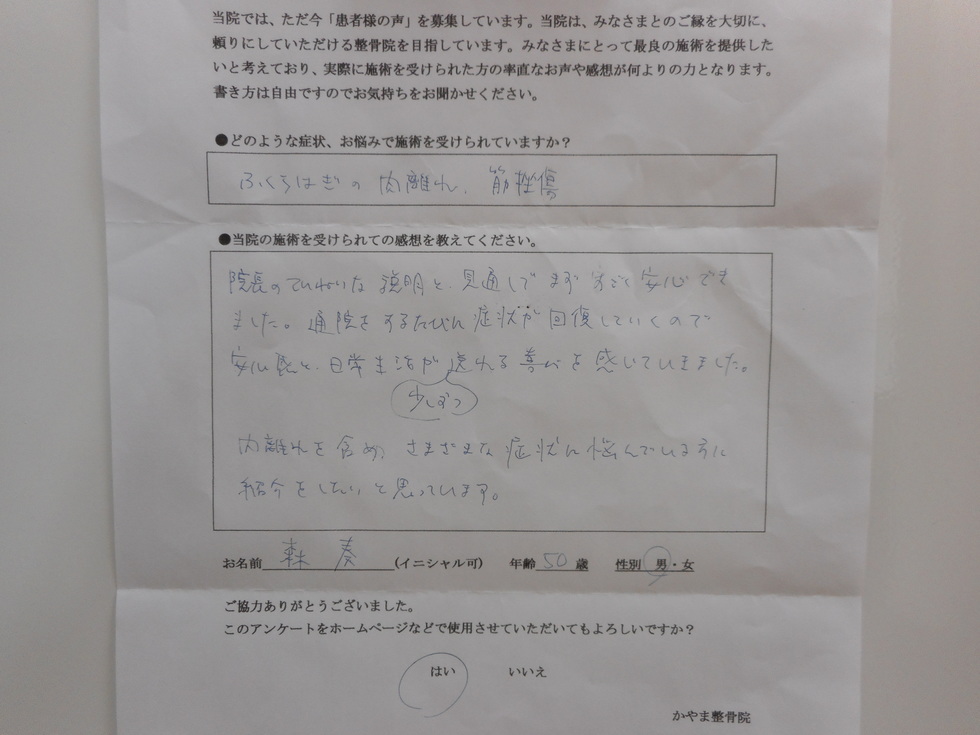 当院では、ただ今「患者様の声」を募集しています。当院は、みなさまとのご縁を大切に、
頼りにしていただける整骨院を目指しています。みなさまにとって最良の施術を提供した
いと考えており、実際に施術を受けられた方の率直なお声や感想が何よりの力となります。
書き方は自由ですのでお気持ちをお聞かせください。
●どのような症状、お悩みで施術を受けられていますか？
ふくらはぎの肉離れ、筋挫傷
●当院の施術を受けられての感想を教えてください。
院長のていねいな説明と、見通しでまずすごく安心でき
ました。通院をするたびに症状が回復していくので
安心感と、日常生活が送れる喜びを感じていきました。
少しずつ
肉離れを含め、さまざまな症状に悩んでいる方に
紹介をしたいと思っています。
お名前 森 奏 (イニシャル可) 年齢 50 歳 性別 男・女
ご協力ありがとうございました。
このアンケートをホームページなどで使用させていただいてもよろしいですか？
はい いいえ
かやま整骨院